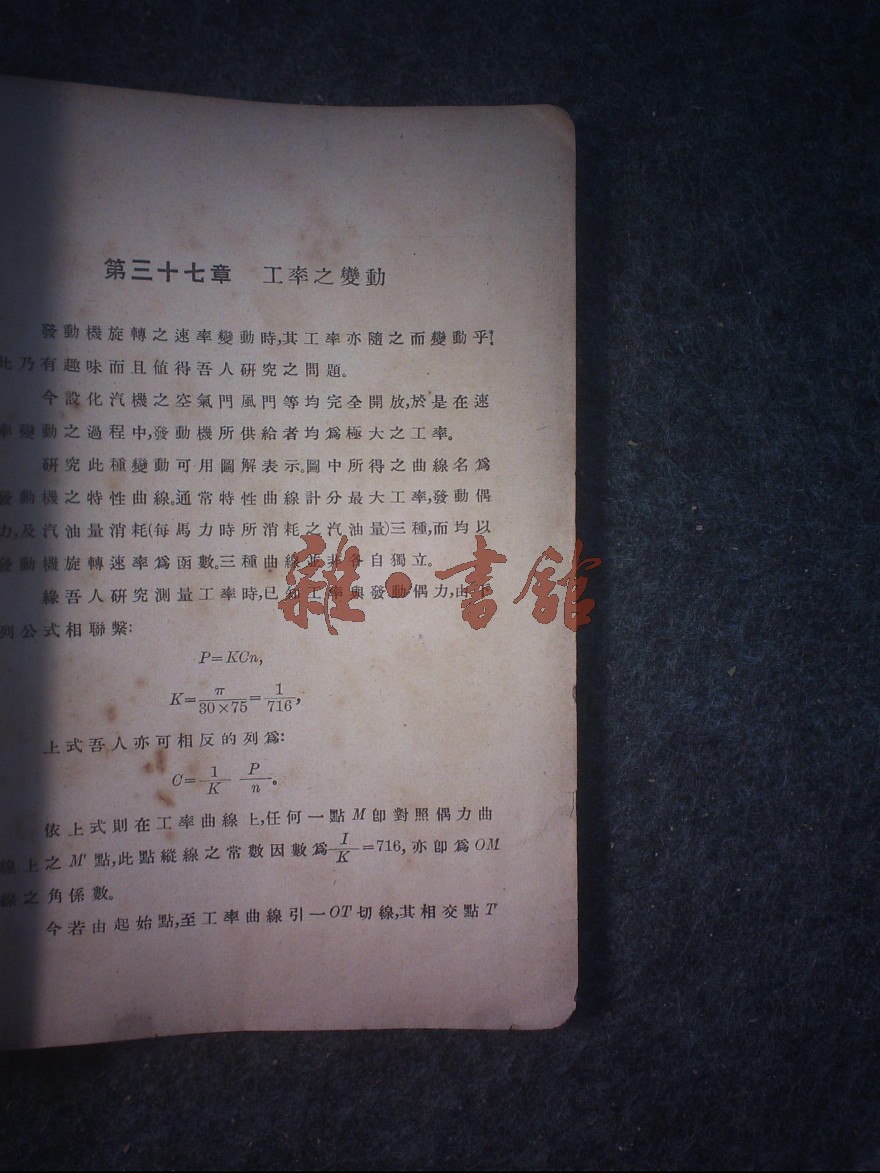 第三十七章 工率之變動
發動機旋轉之速率變動時,其工率亦隨之而變動乎?
此乃有趣味而且値得吾人硏究之問題。
今設化汽機之空氣門風門等均完全開放,於是在速
率變動之過程中,發動機所供給者均爲極大之工率。
硏究此種變動可用圖解表示。圖中所得之曲線名爲
發動機之特性曲線。通常特性曲線計分最大工率,發動偶
力,及汽油量消耗(每馬力時所消耗之汽油量)三種,而均以
發動機旋轉速率爲函數。三種曲線並非各自獨立。
緣吾人硏究測量工率時,已知工率與發動偶力,由下
列公式相聯繫:
P=KCn,
K=π/30×75=1/716,
上式吾人亦可相反的列爲:
C=1/K P/n。
依上式則在工率曲線上,任何一點M卽對照偶力曲
線上之M'點,此點縱線之常數因數爲I/K=716,亦卽爲OM
線之角係數。
今若由起始點,至工率曲線引一OT切線,其相交點T
雜·書館